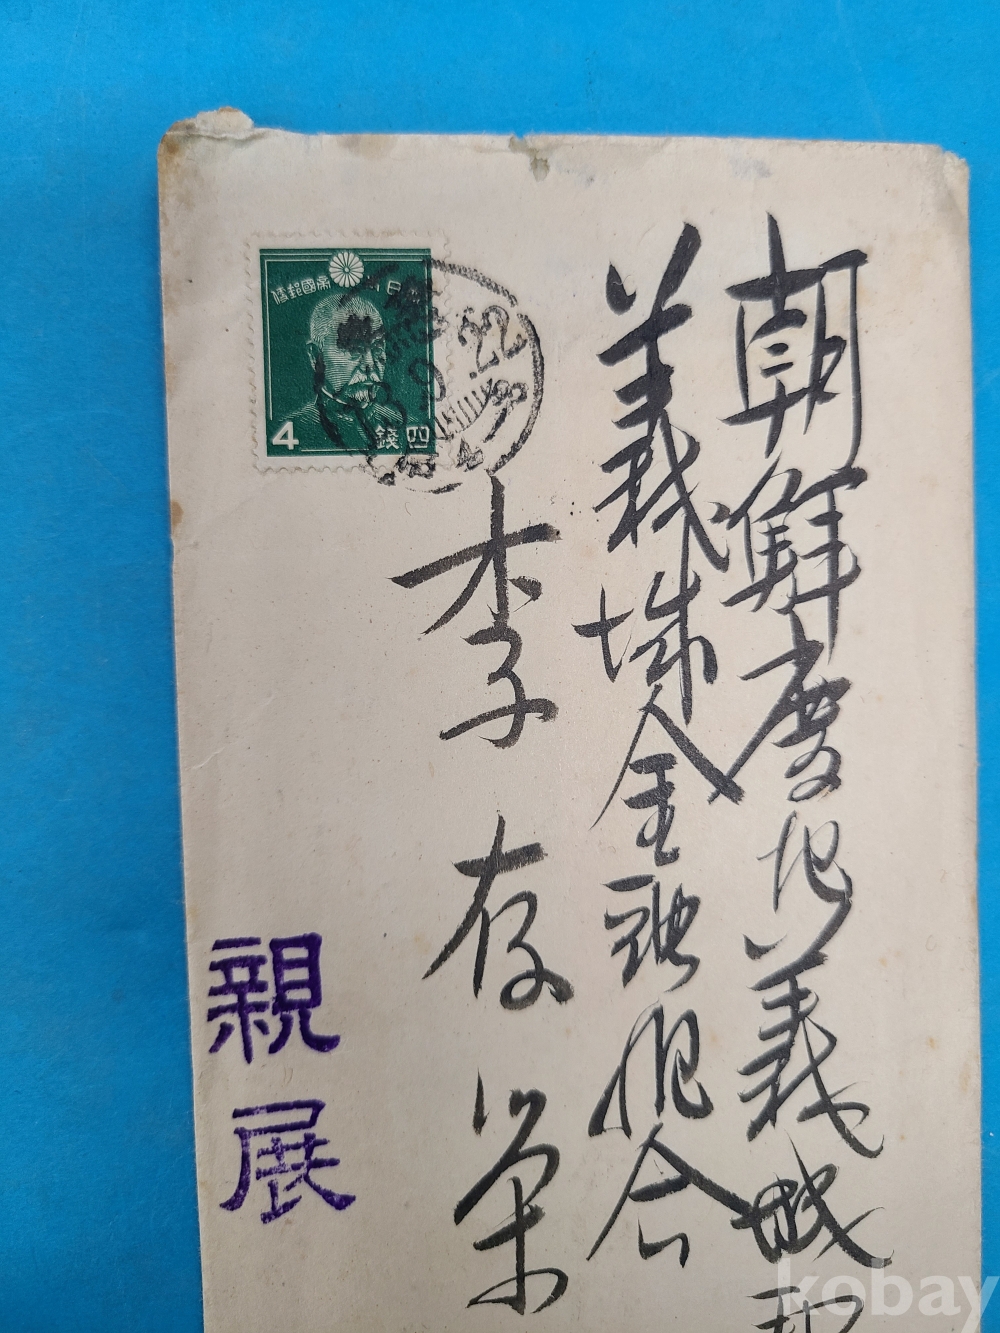 朝鮮慶北義城郡
義城金融組合
李存榮
親展
日本帝國郵便
4 錢四
13.9.22
kobay